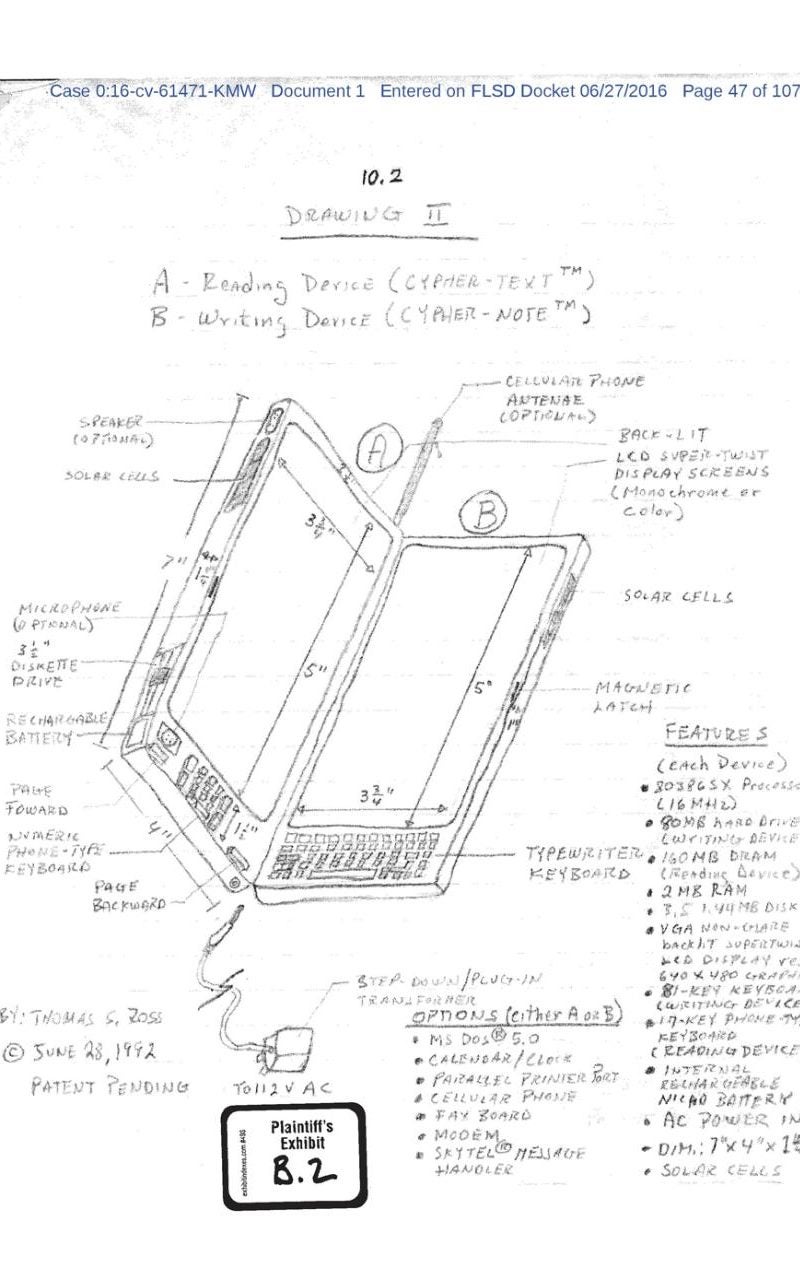 Case 0:16-cv-61471-KMW Document 1 Entered on FLSD Docket 06/27/2016 Page 47 of 107
10.2
DRAWING II
A - Reading Device (CYPHER-TEXT™)
B - Writing Device (CYPHER-NOTE™)
CELLULAR PHONE
ANTENAE
(OPTIONAL)
SPEAKER
(OPTIONAL)
SOLAR CELLS
A
BACK-LIT
LCD SUPER-TWIST
DISPLAY SCREENS
(Monochrome or
Color)
B
3 3/4"
7"
SOLAR CELLS
MICROPHONE
(OPTIONAL)
3 1/2"
DISKETTE
DRIVE
5"
5"
MAGNETIC
LATCH
RECHARGABLE
BATTERY
PAGE
FOWARD
NUMERIC
PHONE-TYPE
KEYBOARD
4"
PAGE
BACKWARD
1 1/2"
3 3/4"
TYPEWRITER
KEYBOARD
FEATURES
(Each Device)
• 80386SX Process
(16 MHz)
• 80MB HARD DRIVE
(WRITING DEVICE
• 160MB DRAM
(Reading Device)
• 2 MB RAM
• 3.5 1.44 MB DISK
• VGA NON-GLARE
backlit SUPERTWI
LCD DISPLAY
640 X 480 GRAPH
• 81-KEY KEYBOA
(WRITING DEVICE
• 17-KEY PHONE-TY
KEYBOARD
(READING DEVICE
• INTERNAL
RECHARGEABLE
NICAD BATTERY
• AC POWER IN
• DIM.: 7" X 4" X 1
• SOLAR CELLS
STEP-DOWN/PLUG-IN
TRANSFORMER
TO 112 V AC
OPTIONS (either A or B)
• MS DOS® 5.0
• CALENDAR/CLOCK
• PARALLEL PRINTER PORT
• CELLULAR PHONE
• FAX BOARD
• MODEM
• SKYTEL® MESSAGE
HANDLER
BY: THOMAS S. ROSS
© JUNE 28, 1992
PATENT PENDING
exhibitindexes.com
Plaintiff's
Exhibit
B.2